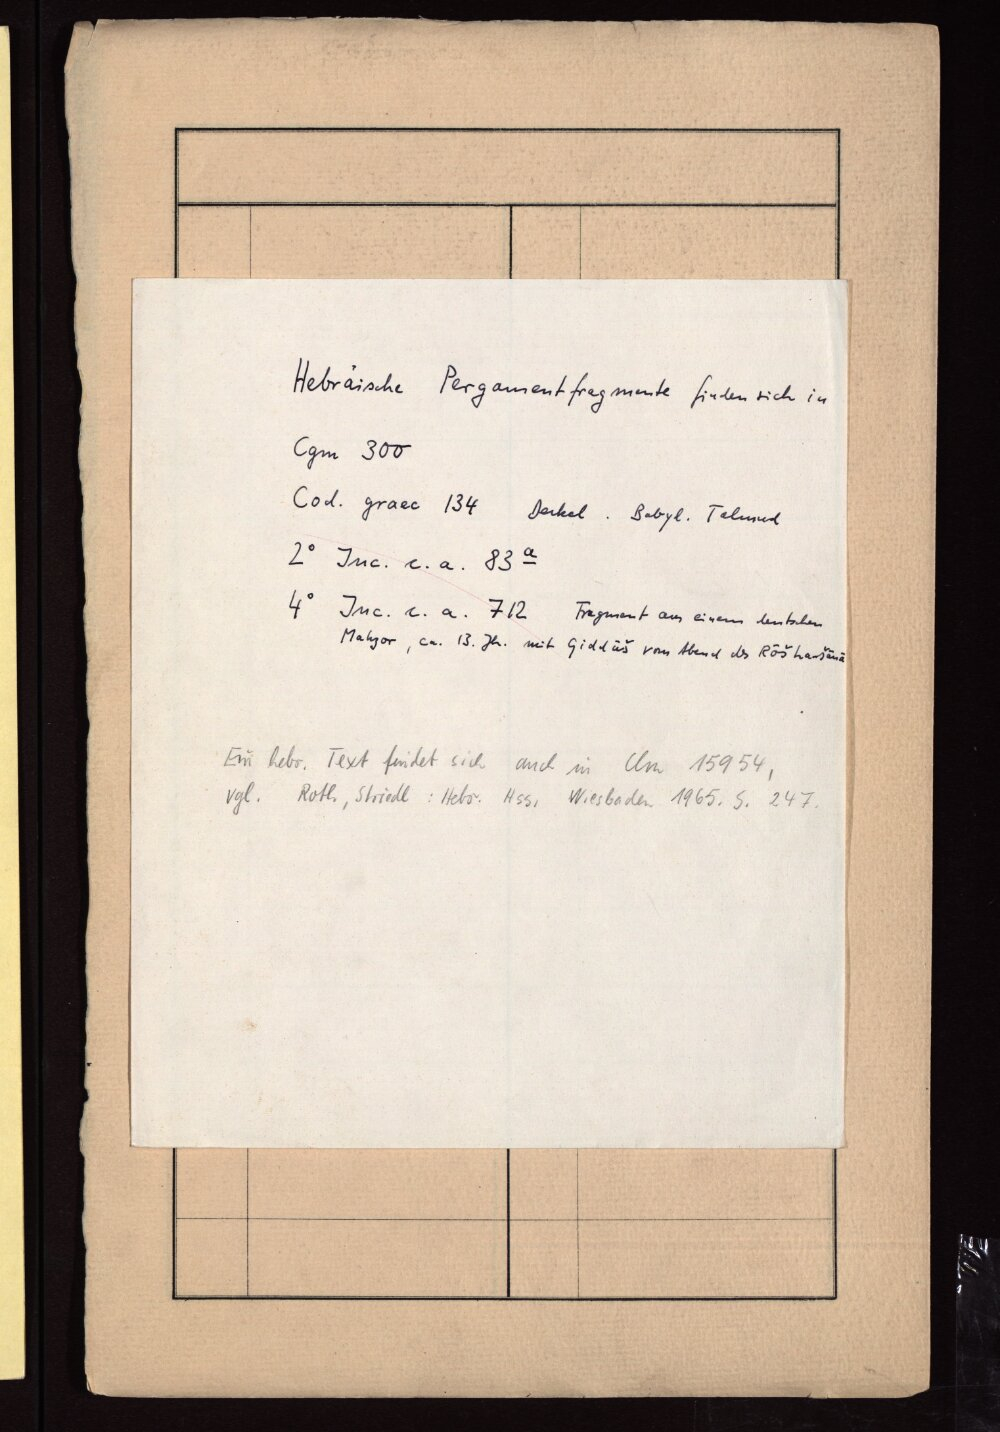 Hebräische Pergamentfragmente finden sich in
Cgm 300
Cod. graec 134 Deckel . Babyl. Talmud
2° Inc. c. a. 83 a
4° Inc. c. a. 712 Fragment aus einem deutschen
Mahzor, ca. 13. Jh. mit Qiddūš vom Abend des Rōš haššānā
Ein hebr. Text findet sich auch in Clm 15954,
vgl. Roth, Striedl : Hebr. Hss, Wiesbaden 1965. S. 247.